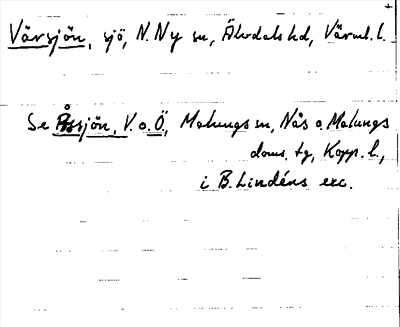 Vårsjön, sjö, N. Ny sn, Älvdals hd, Värml. l.
Se Åssjön, V. o. Ö., Malungs sn, Nås o. Malungs
doms. tg, Kopp. l.,
i B. Lindéns exc.